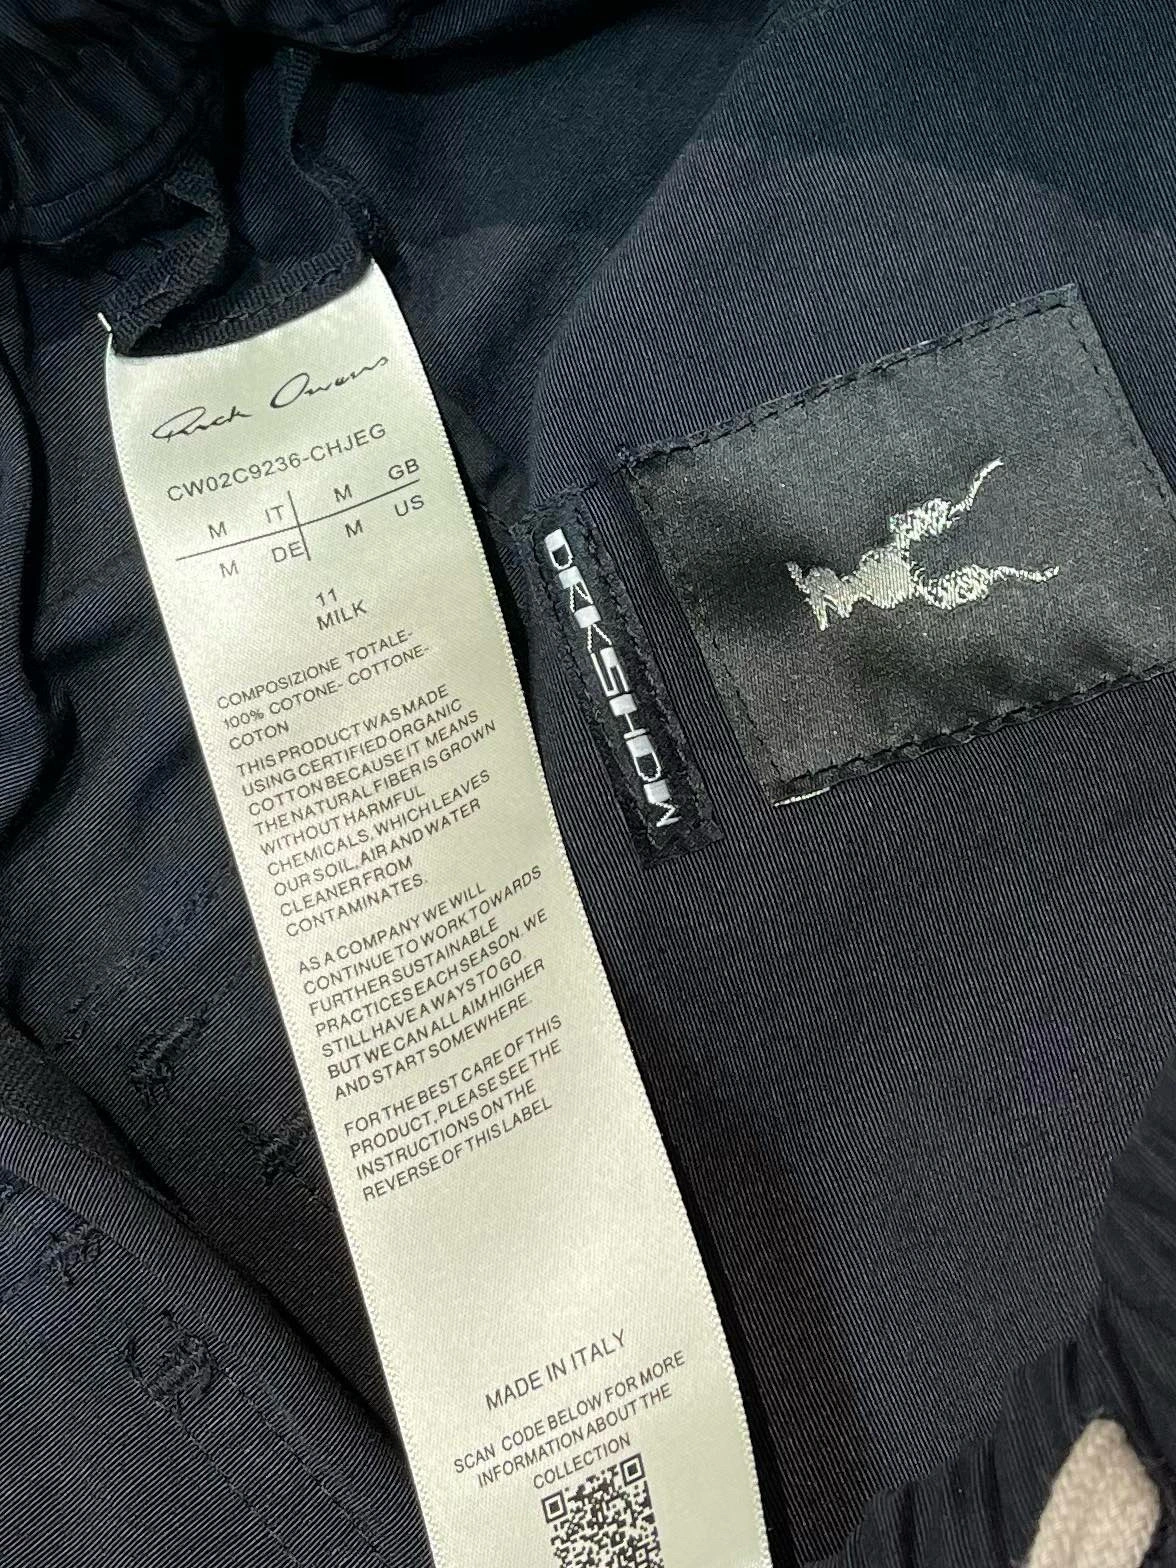 Rick Owens
CW02C9236-CHJEG
M IT M GB
M DE M US
11
MILK
COMPOSIZIONE TOTALE-
100% COTONE- COTTONE-
COTON
THIS PRODUCT WAS MADE
USING CERTIFIED ORGANIC
COTTON BECAUSE IT MEANS
THE NATURAL FIBER IS GROWN
WITHOUT HARMFUL
CHEMICALS, WHICH LEAVES
OUR SOIL, AIR AND WATER
CLEANER FROM
CONTAMINATES.
AS A COMPANY WE WILL
CONTINUE TO WORK TOWARDS
FURTHER SUSTAINABLE
PRACTICES EACH SEASON. WE
STILL HAVE A WAYS TO GO
BUT WE CAN ALL AIM HIGHER
AND START SOMEWHERE.
FOR THE BEST CARE OF THIS
PRODUCT, PLEASE SEE THE
INSTRUCTIONS ON THE
REVERSE OF THIS LABEL
MADE IN ITALY
SCAN CODE BELOW FOR MORE
INFORMATION ABOUT THE
COLLECTION
DRKSHDW